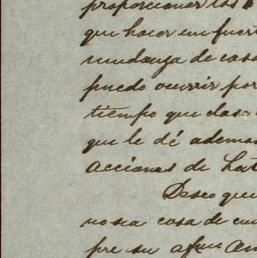 proporcionar los
que hacer un fuert
mudanza de casa
puedo ocurrir por
tiempo que
que le dé ademas
acciones de
Deseo que
no sea cosa de
pre su afmo am